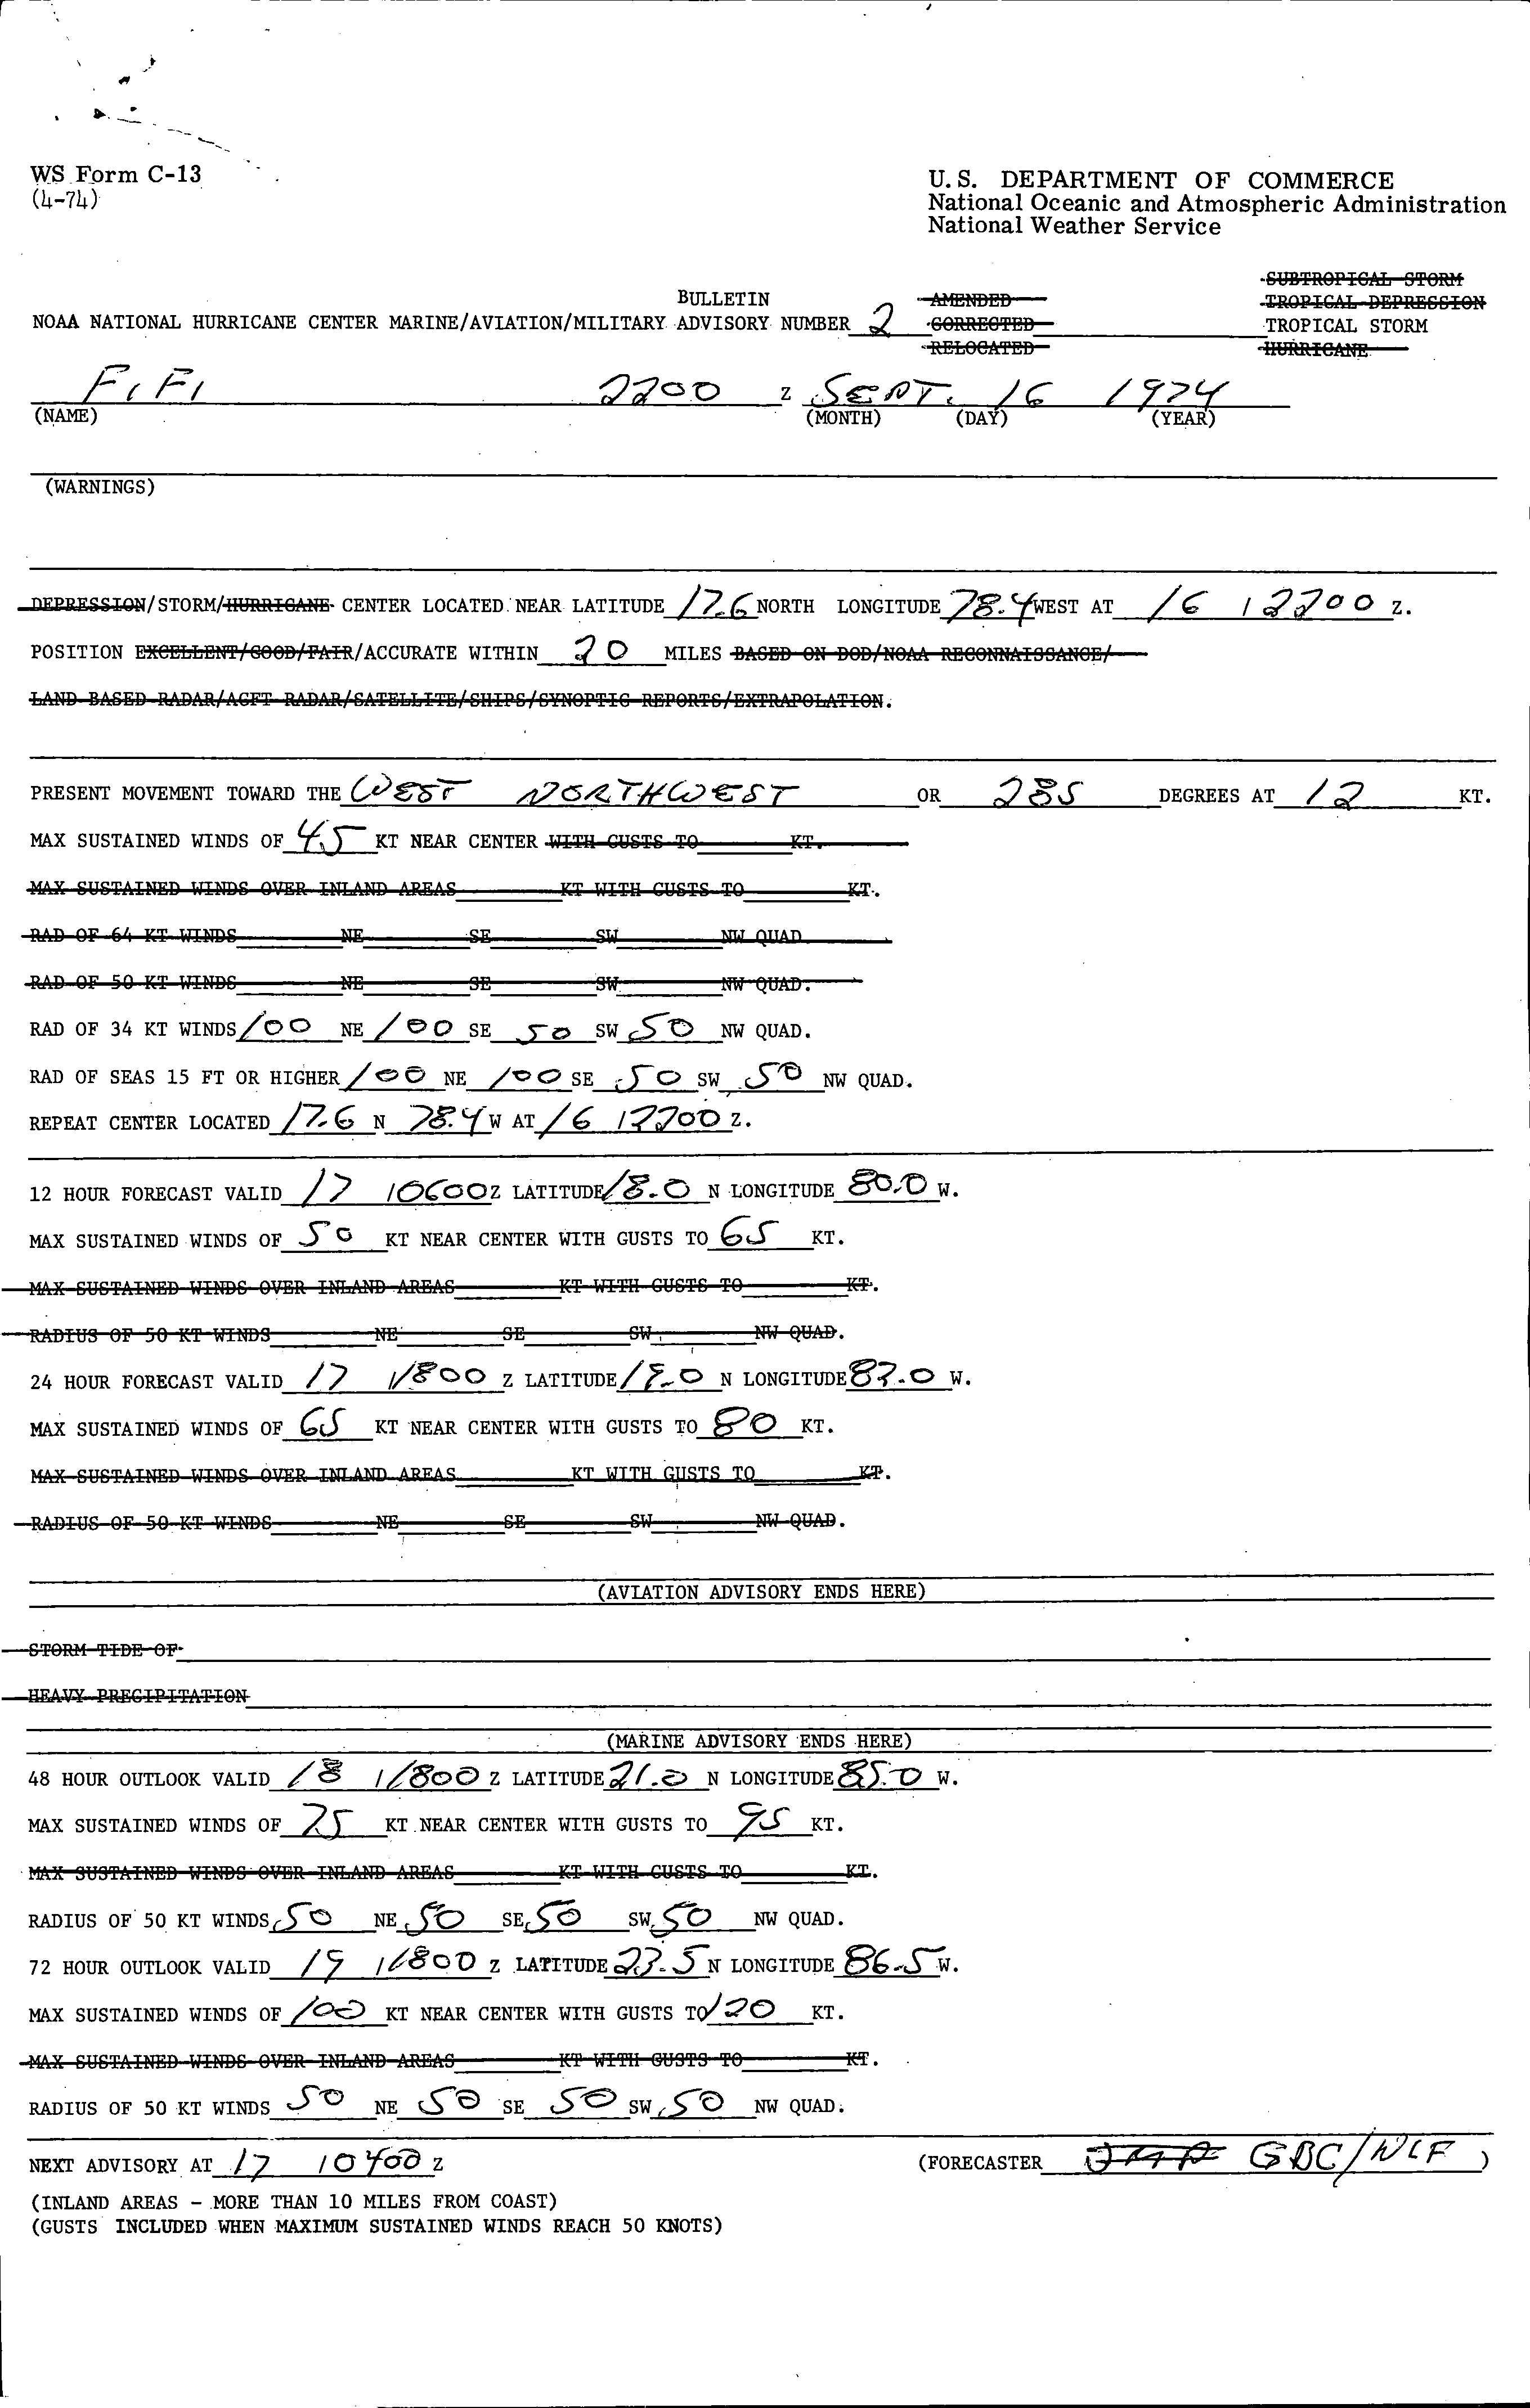 WS Form C-13
(4-74)
U.S. DEPARTMENT OF COMMERCE
National Oceanic and Atmospheric Administration
National Weather Service
SUBTROPICAL STORM
BULLETIN AMENDED TROPICAL DEPRESSION
NOAA NATIONAL HURRICANE CENTER MARINE/AVIATION/MILITARY ADVISORY NUMBER 2 CORRECTED TROPICAL STORM
RELOCATED HURRICANE
FIFI 2200 Z SEPT. 16 1974
(NAME) (MONTH) (DAY) (YEAR)
(WARNINGS)
DEPRESSION/STORM/HURRICANE CENTER LOCATED NEAR LATITUDE 17.6 NORTH LONGITUDE 78.4 WEST AT 16 / 2200 Z.
POSITION EXCELLENT/GOOD/FAIR/ACCURATE WITHIN 20 MILES BASED ON DOD/NOAA RECONNAISSANCE/
LAND BASED RADAR/ACFT RADAR/SATELLITE/SHIPS/SYNOPTIC REPORTS/EXTRAPOLATION.
PRESENT MOVEMENT TOWARD THE WEST NORTHWEST OR 285 DEGREES AT 12 KT.
MAX SUSTAINED WINDS OF 45 KT NEAR CENTER WITH GUSTS TO KT.
MAX SUSTAINED WINDS OVER INLAND AREAS KT WITH GUSTS TO KT.
RAD OF 64 KT WINDS NE SE SW NW QUAD
RAD OF 50 KT WINDS NE SE SW NW QUAD.
RAD OF 34 KT WINDS 100 NE 100 SE 50 SW 50 NW QUAD.
RAD OF SEAS 15 FT OR HIGHER 100 NE 100 SE 50 SW 50 NW QUAD.
REPEAT CENTER LOCATED 17.6 N 78.4 W AT 16 / 2200 Z.
12 HOUR FORECAST VALID 17 / 0600 Z LATITUDE 18.0 N LONGITUDE 80.0 W.
MAX SUSTAINED WINDS OF 50 KT NEAR CENTER WITH GUSTS TO 65 KT.
MAX SUSTAINED WINDS OVER INLAND AREAS KT WITH GUSTS TO KT.
RADIUS OF 50 KT WINDS NE SE SW NW QUAD.
24 HOUR FORECAST VALID 17 / 1800 Z LATITUDE 19.0 N LONGITUDE 82.0 W.
MAX SUSTAINED WINDS OF 65 KT NEAR CENTER WITH GUSTS TO 80 KT.
MAX SUSTAINED WINDS OVER INLAND AREAS KT WITH GUSTS TO KT.
RADIUS OF 50 KT WINDS NE SE SW NW QUAD.
(AVIATION ADVISORY ENDS HERE)
STORM TIDE OF
HEAVY PRECIPITATION
(MARINE ADVISORY ENDS HERE)
48 HOUR OUTLOOK VALID 18 / 1800 Z LATITUDE 21.0 N LONGITUDE 85.0 W.
MAX SUSTAINED WINDS OF 75 KT NEAR CENTER WITH GUSTS TO 95 KT.
MAX SUSTAINED WINDS OVER INLAND AREAS KT WITH GUSTS TO KT.
RADIUS OF 50 KT WINDS 50 NE 50 SE 50 SW 50 NW QUAD.
72 HOUR OUTLOOK VALID 19 / 1800 Z LATITUDE 23.5 N LONGITUDE 86.5 W.
MAX SUSTAINED WINDS OF 100 KT NEAR CENTER WITH GUSTS TO 120 KT.
MAX SUSTAINED WINDS OVER INLAND AREAS KT WITH GUSTS TO KT.
RADIUS OF 50 KT WINDS 50 NE 50 SE 50 SW 50 NW QUAD.
NEXT ADVISORY AT 17 / 0400 Z (FORECASTER GBC/NLF)
(INLAND AREAS - MORE THAN 10 MILES FROM COAST)
(GUSTS INCLUDED WHEN MAXIMUM SUSTAINED WINDS REACH 50 KNOTS)